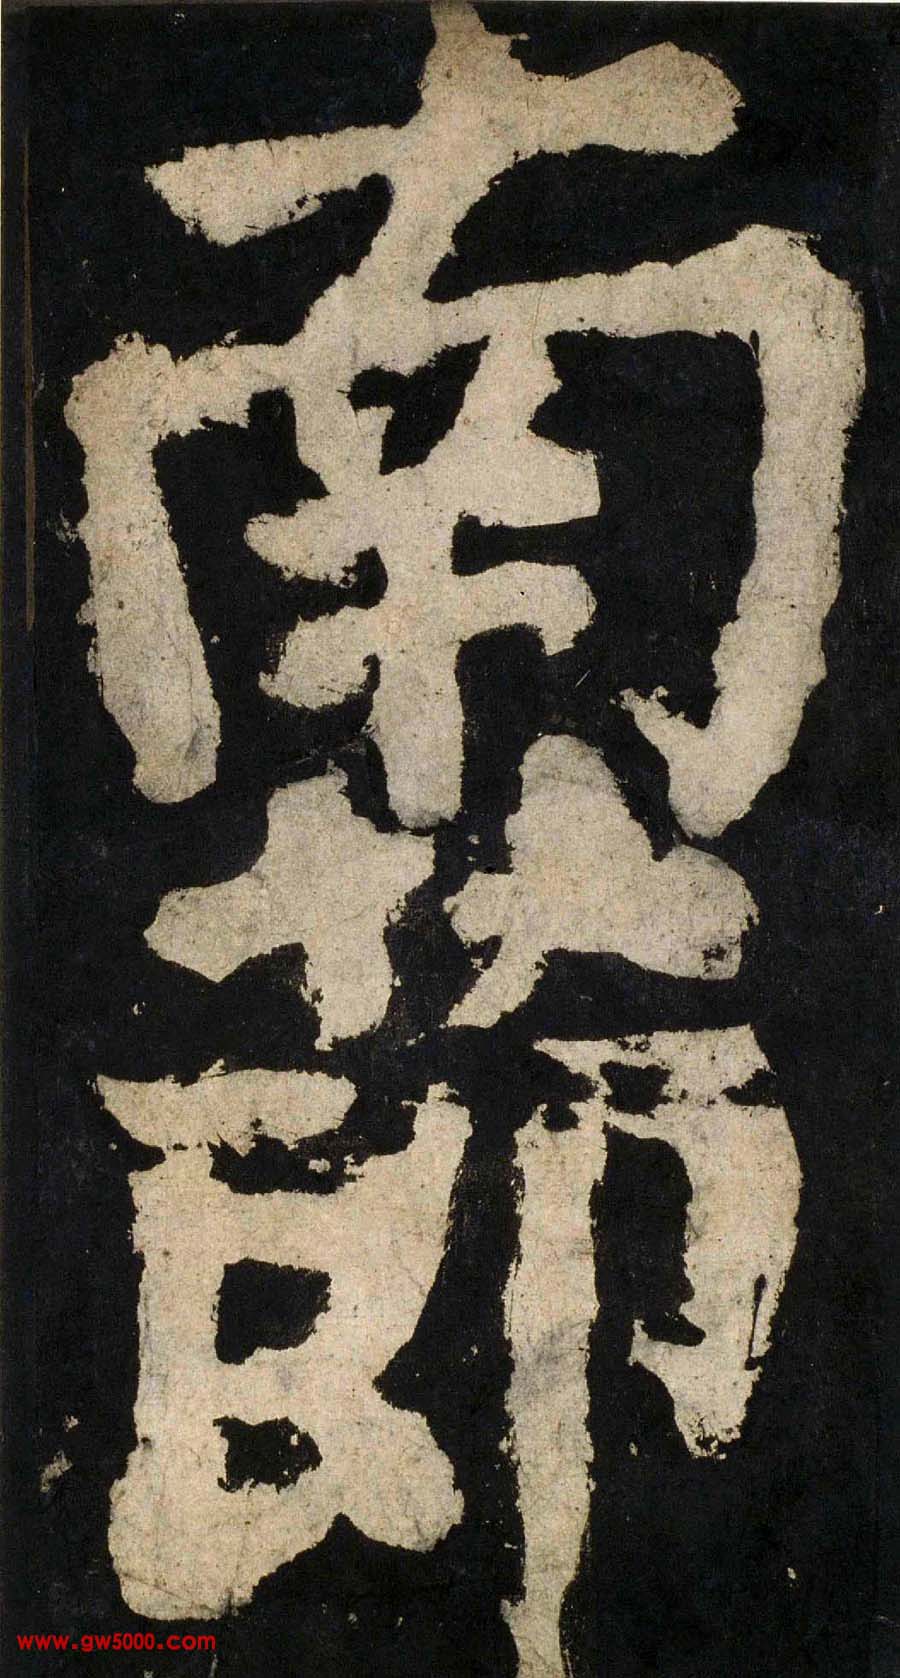 南節
www.gw5000.com